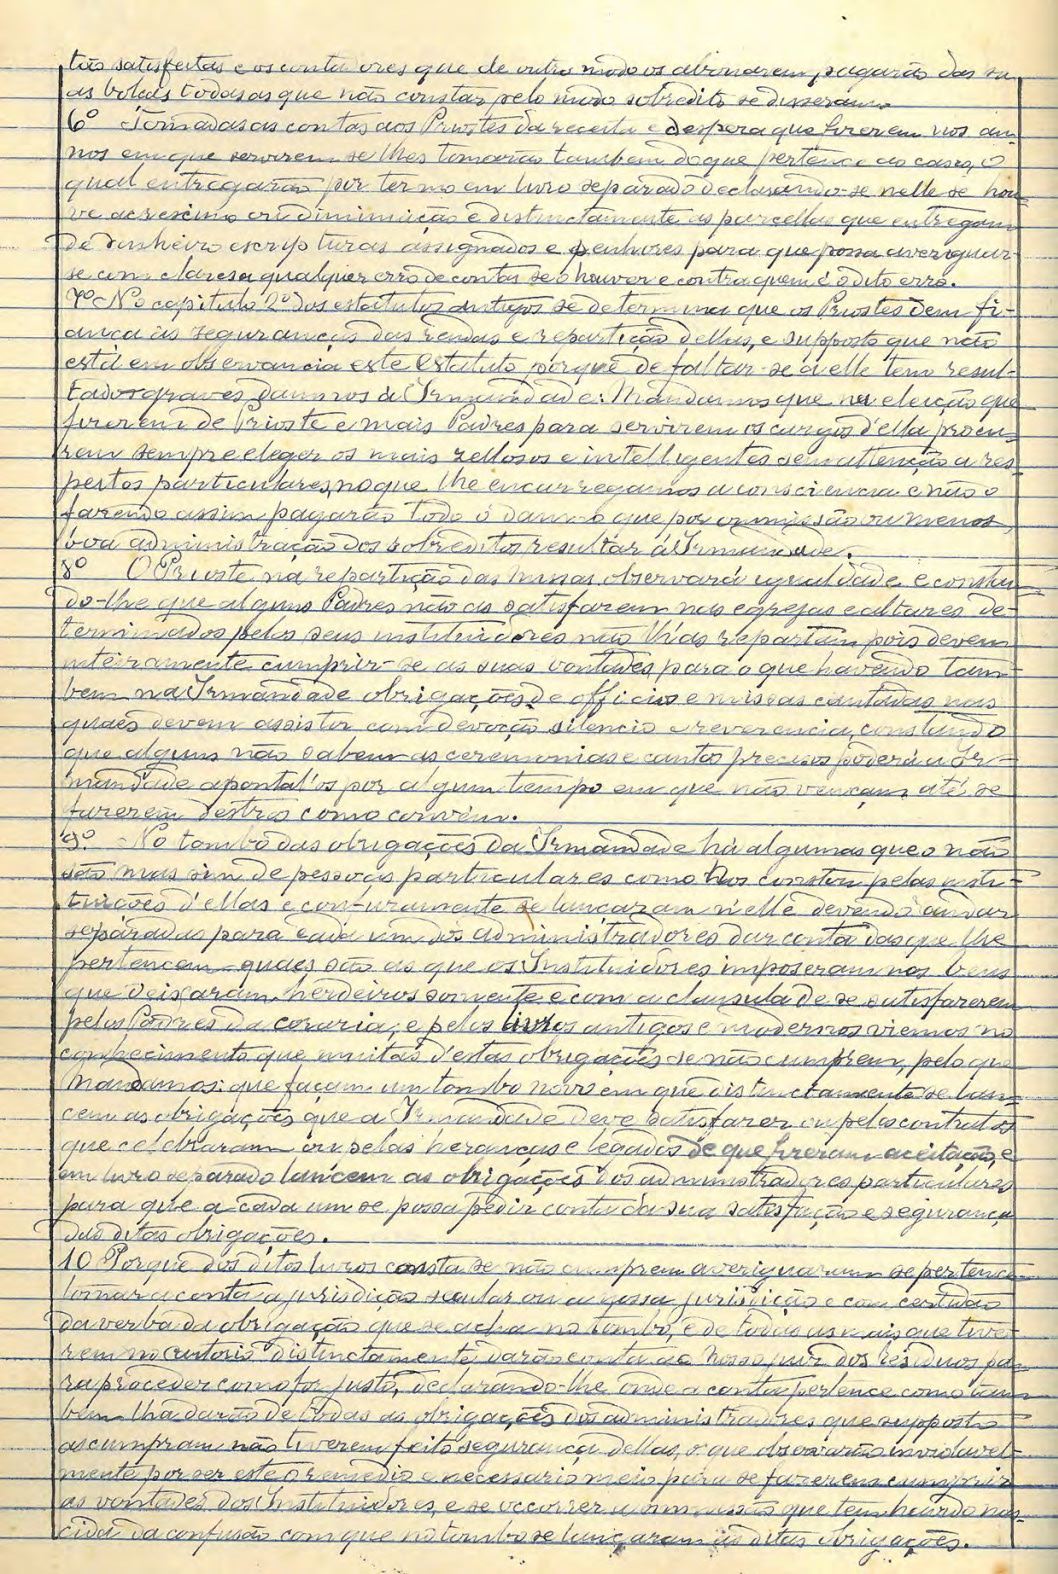 tas satisfeitas e os contadores que de outro modo os abonarem, pagarão das su-
as bolças todas as que não constar pelo modo sobredito se disseram.
6º Tomadas as contas aos Priostes da receita e despeza que fizerem nos an-
nos em que servirem se lhes tomarão tambem do que pertence ao casco, o
qual entregarão por termo em livro separado declarando-se nelle se hou-
ve acrescimo ou diminuição e distinctamente as parcellas que entregam
de dinheiro escripturas assignados e penhores para que possa averiguar-
se com claresa qualquer erro de contas se o houver e contra quem é o dito erro.
7º No capitulo 2º dos estatutos antigos se determina que os Priostes dem fi-
ança ás seguranças das rendas e repartição dellas, e supposto que não
está em observancia este Estatuto porque de faltar-se a elle tem resul-
tado graves damnos á Irmandade: Mandamos que na eleição que
fizerem de Prioste e mais Padres para servirem os cargos d'ella procu-
rem sempre eleger os mais zellosos e intelligentes sem attenção a res-
peitos particulares, no que lhe encarregamos a consciencia e não o
fazendo assim pagarão todo o damno que por ommissão ou menos
boa administração dos sobreditos resultar á Irmandade.
8º O Prioste na repartição das missas, observará igualdade e constan-
do-lhe que alguns Padres não as satisfazem nas egrejas e altares de-
terminados pelos seus instituidores não lh'as repartam pois devem
inteiramente cumprir-se as suas vontades, para o que havendo tam-
bem na Irmandade obrigações de officios e missas cantadas nas
quaes devem assistir com devoção silencio e reverencia, constando
que alguns não sabem as ceremonias e cantos precisos poderá a Ir-
mandade apontal'os por algum tempo em que não vençam até se
fazerem destros como convém.
9º No tombo das obrigações da Irmandade há algumas que o não
são mas sim de pessoas particulares como nos constou pelas insti-
tuições d'ellas e se lançaram n'elle devendo andar
separadas para cada um dos administradores dar conta das que lhe
pertencem quaes são as que os Instituidores imposeram nos bens
que deixaram, herdeiros somente e com a clausula de se satisfazerem
pelos Padres da coraria, e pelos livros antigos e modernos viemos no
conhecimento que muitas d'estas obrigações se não cumprem, pelo que
Mandamos: que façam um tombo novo em que distinctamente se lan-
cem as obrigações que a Irmandade deve satisfazer ou pelos contratos
que celebraram ou pelas heranças e legados de que fizeram aceitação, e
em livro separado lancem as obrigações dos administradores particulares
para que a cada um se possa pedir conta da sua satisfação e segurança
das ditas obrigações.
10 Porque dos ditos livros consta se não cumprem averiguaram se pertence
tomar a conta a jurisdição secular ou a nossa jurisdição e com certidão
da verba da obrigação que se acha no tombo, e de todas as mais que tive-
rem no Cartorio distinctamente darão conta ao Nosso juiz dos residuos pa-
ra proceder como for justo, declarando-lhe onde a conta pertence como tam-
bem lha darão de todas as obrigações dos administradores que supposto
as cumpram não tiverem feito segurança dellas, o que observarão inviolavel-
mente por ser este o remedio e necessario meio para se fazerem cumprir
as vontades dos Instituidores, e se occorrer a ommissão que tem havido nas-
cida da confusão com que no tombo se lançaram as ditas obrigações.